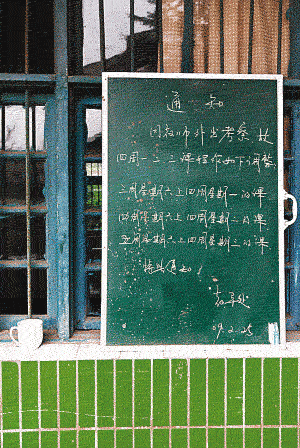 通知
因教师外出考察，故
四周一二三课程作如下调整
三周星期六上四周星期一的课
四周星期六上四周星期二的课
五周星期六上四周星期三的课
特此通知！
教导处
09.2.25